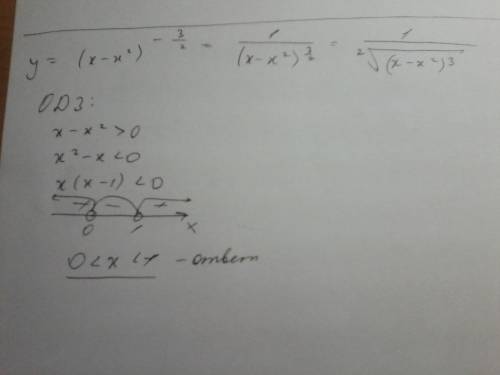 y = (x-x²)^{-3/2} = 1/(x-x²)^{3/2} = 1/²√(x-x²)³
ОДЗ:
x-x²>0
x²-x<0
x(x-1)<0
+ - +
0 1 x
0<x<1 - ответ